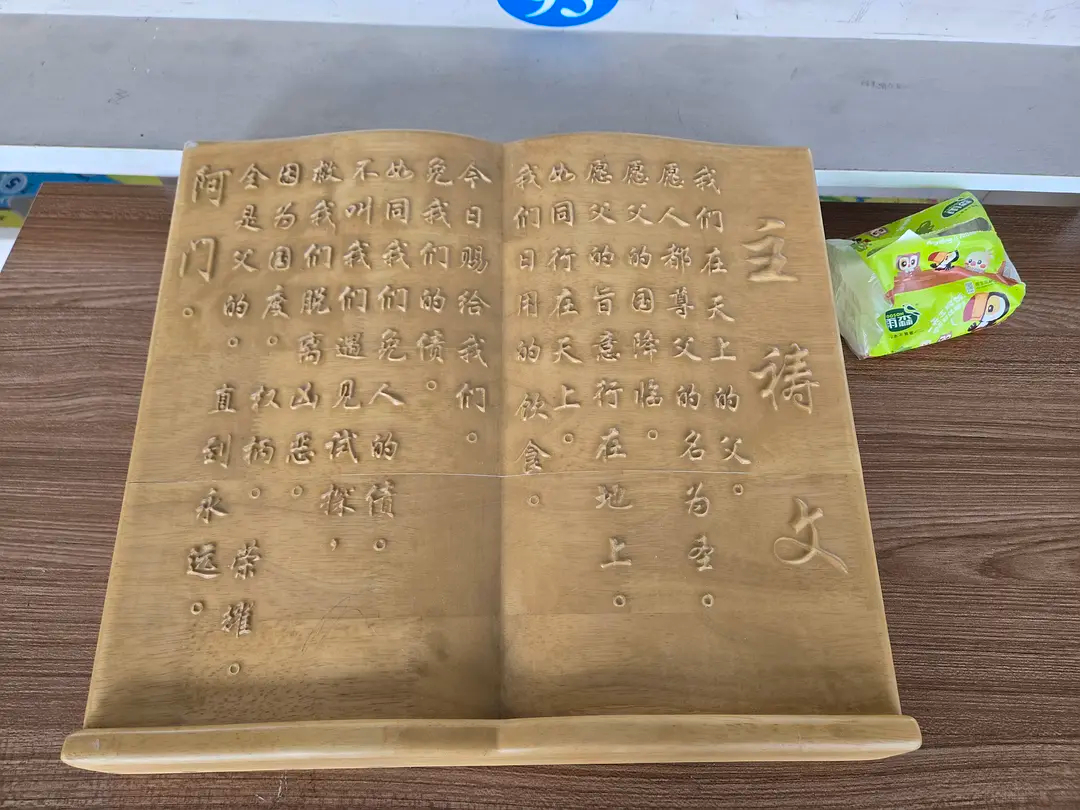 主祷文
我们在天上的父。
愿人都尊父的名为圣。
愿父的国降临。
愿父的旨意行在地上。
如同行在天上。
我们日用的饮食。
今日赐给我们。
免我们的债。
如同我们免人的债。
不叫我们遇见试探，
救我们脱离凶恶。
因为国度。权柄。荣耀。
全是父的。直到永远。
阿门。
雨森